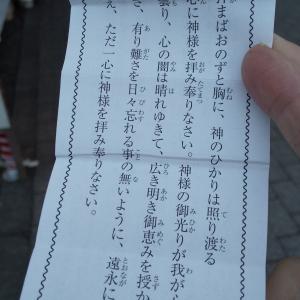 まばおのずと胸に、神のひかりは照り渡る
心に神様を拝み奉りなさい。神様の御光りが我が
曇り、心の闇は晴れゆきて、広き明き御恵みを授か
さ、有り難さを日々忘れる事の無いように、遠永に
え、ただ一心に神様を拝み奉りなさい。